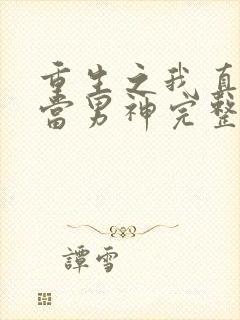 重生之我真
当男神完整
譚雪